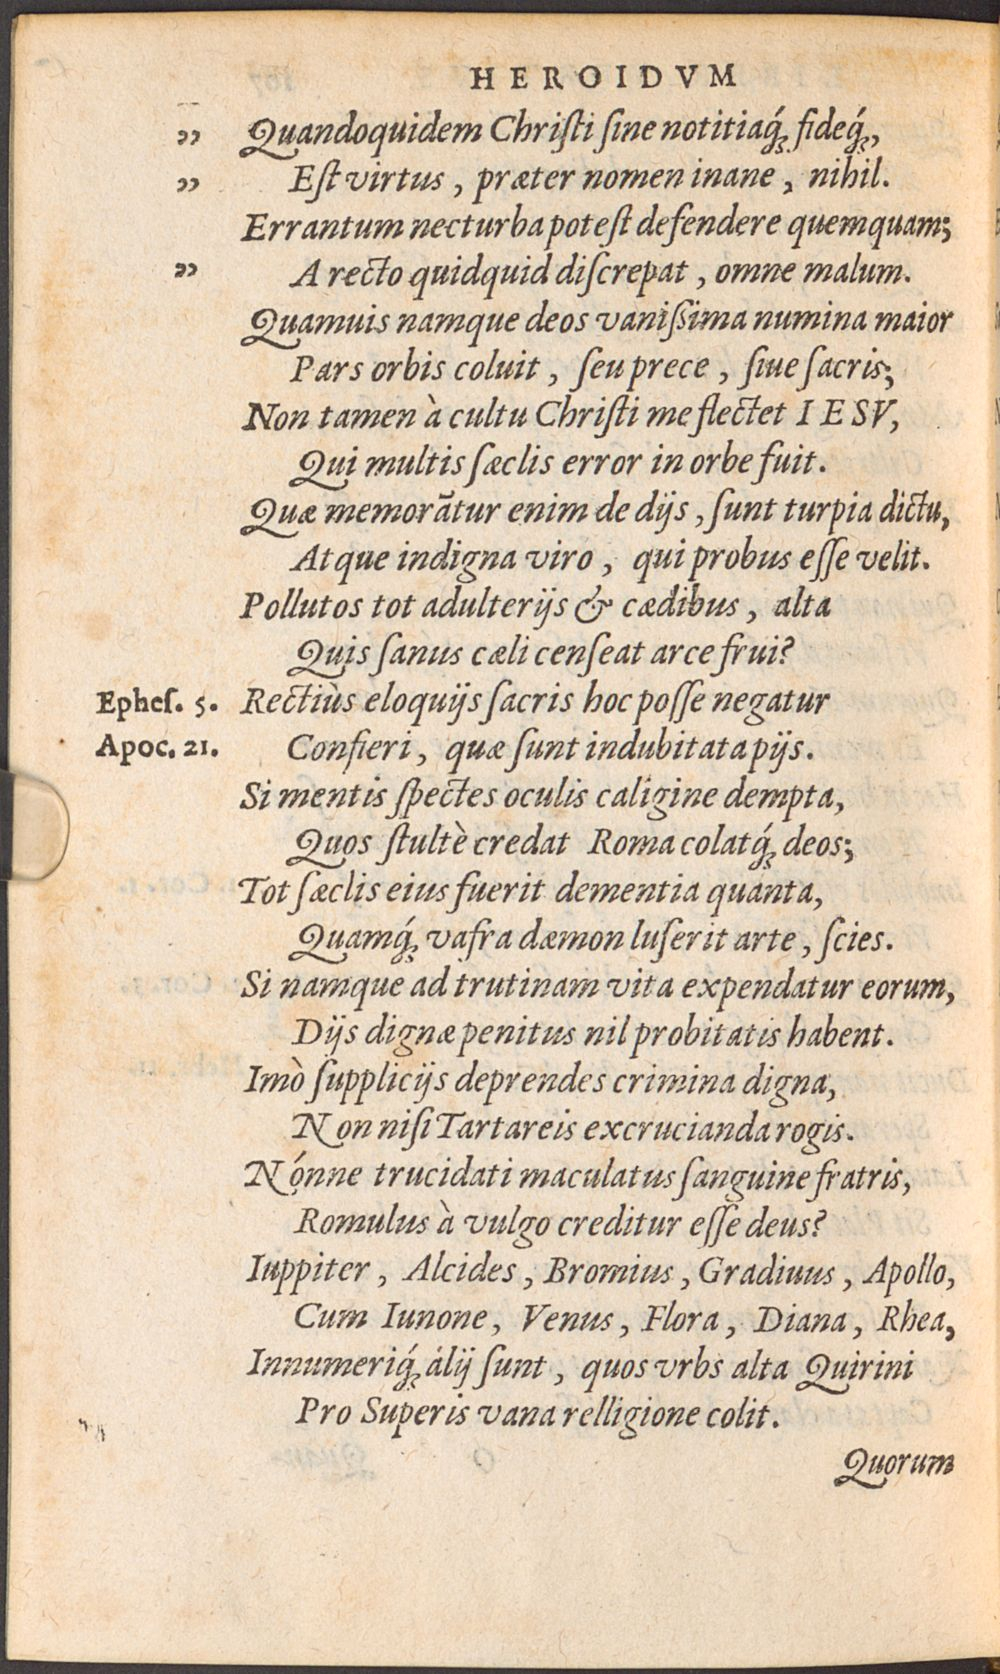 HEROIDVM
„ Quandoquidem Chriſti ſine notitiaq́ꝫ fideq́ꝫ,
„ Eſt virtus, præter nomen inane, nihil.
Errantum nec turba poteſt defendere quemquam;
„ A recto quidquid diſcrepat, omne malum.
Quamuis namque deos vaniſsima numina maior
Pars orbis coluit, ſeu prece, ſiue ſacris;
Non tamen à cultu Chriſti me flectet IESV,
Qui multis ſæclis error in orbe fuit.
Quæ memorãtur enim de dijs, ſunt turpia dictu,
Atque indigna viro, qui probus eſſe velit.
Pollutos tot adulterijs & cædibus, alta
Quis ſanus cæli cenſeat arce frui?
Epheſ. 5. Rectiùs eloquijs ſacris hoc poſſe negatur
Apoc. 21. Confieri, quæ ſunt indubitata pijs.
Si mentis ſpectes oculis caligine dempta,
Quos ſtultè credat Roma colatq́ꝫ deos;
Tot ſæclis eius fuerit dementia quanta,
Quamq́ꝫ vafra dæmon luſerit arte, ſcies.
Si namque ad trutinam vita expendatur eorum,
Dijs dignæ penitus nil probitatis habent.
Imò ſupplicijs deprendes crimina digna,
Non niſi Tartareis excrucianda rogis.
Nónne trucidati maculatus ſanguine fratris,
Romulus à vulgo creditur eſſe deus?
Iuppiter, Alcides, Bromius, Gradiuus, Apollo,
Cum Iunone, Venus, Flora, Diana, Rhea,
Innumeriq́ꝫ álij ſunt, quos vrbs alta Quirini
Pro Superis vana relligione colit.
Quorum